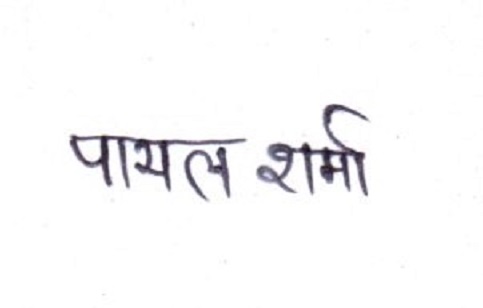 पायल शर्मा